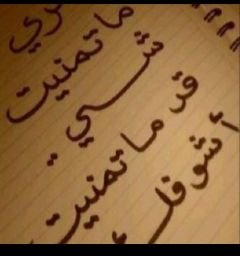 ما تمنيت
شي
قد ما تمنيت
أشوفك